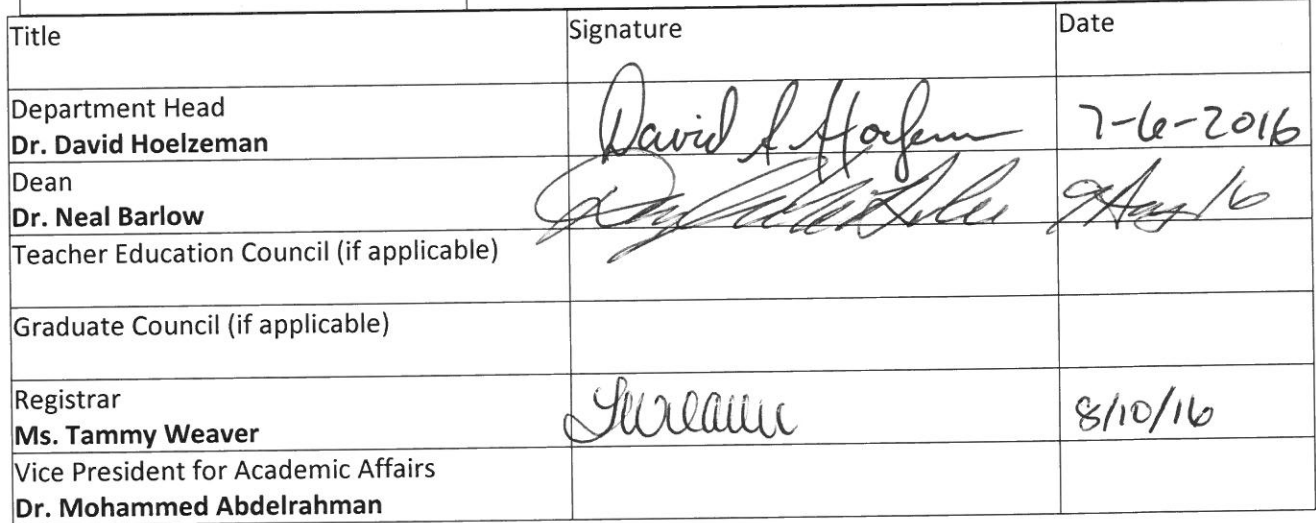 Title Signature Date
Department Head
Dr. David Hoelzeman David 7-6-2016
Dean
Dr. Neal Barlow 9 Aug 16
Teacher Education Council (if applicable)
Graduate Council (if applicable)
Registrar
Ms. Tammy Weaver 8/10/16
Vice President for Academic Affairs
Dr. Mohammed Abdelrahman